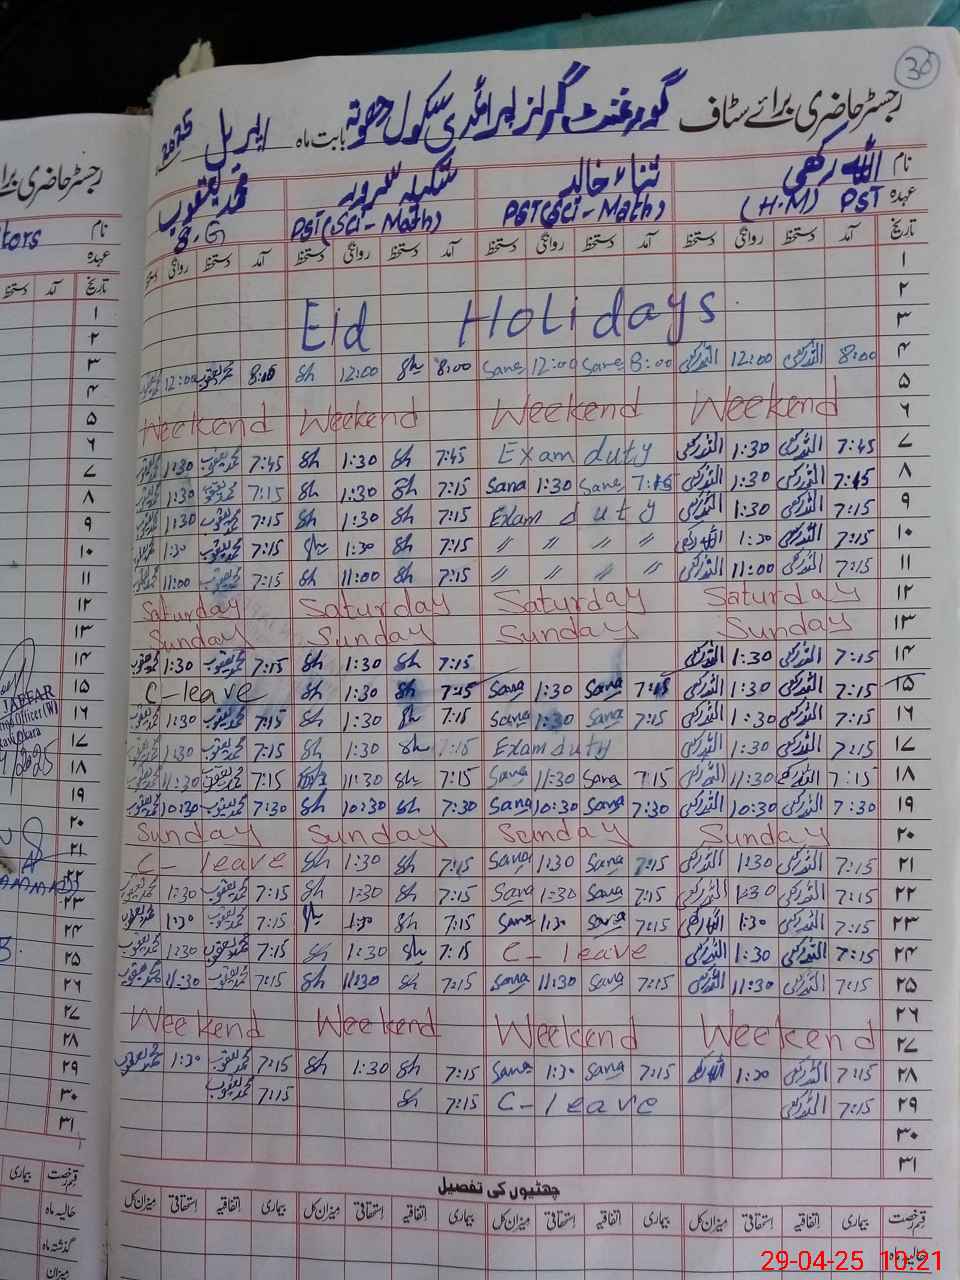 30
رجسٹر حاضری برائے سٹاف گورنمنٹ گرلز پرائمری سکول جھوتہ بابت ماہ اپریل 2025
نام اللہ رکھی ثناء خالد شکیلہ سرور محمد یعقوب
عہدہ PST (H.M) PST (Sci-Math) PST (Sci-Math) S.G
تاریخ آمد دستخط روانگی دستخط آمد دستخط روانگی دستخط آمد دستخط روانگی دستخط آمد دستخط روانگی دستخط
۱
۲
Eid Holidays
۳
۴ 8:00 اللہ رکھی 12:00 اللہ رکھی 8:00 Sana 12:00 Sana 8:00 Sh 12:00 Sh 8:00 محمد یعقوب 12:00 محمد یعقوب
۵
Weekend Weekend Weekend Weekend
۶
۷ 7:45 اللہ رکھی 1:30 اللہ رکھی Exam duty 7:45 Sh 1:30 Sh 7:45 محمد یعقوب 1:30 محمد یعقوب
۸ 7:15 اللہ رکھی 1:30 اللہ رکھی 7:15 Sana 1:30 Sana 7:15 Sh 1:30 Sh 7:15 محمد یعقوب 1:30 محمد یعقوب
۹ 7:15 اللہ رکھی 1:30 اللہ رکھی Exam duty 7:15 Sh 1:30 Sh 7:15 محمد یعقوب 11:30 محمد یعقوب
۱۰ 7:15 اللہ رکھی 1:30 اللہ رکھی 〃 〃 〃 〃 7:15 Sh 1:30 Sh 7:15 محمد یعقوب 1:30 محمد یعقوب
۱۱ 7:15 اللہ رکھی 11:00 اللہ رکھی 〃 〃 〃 〃 7:15 Sh 11:00 Sh 7:15 محمد یعقوب 11:00 محمد یعقوب
۱۲ Saturday Saturday Saturday Saturday
۱۳ Sunday Sunday Sunday Sunday
۱۴ 7:15 اللہ رکھی 1:30 اللہ رکھی 7:15 Sh 1:30 Sh 7:15 محمد یعقوب 1:30 محمد یعقوب
۱۵ 7:15 اللہ رکھی 1:30 اللہ رکھی 7:15 Sana 1:30 Sana 7:15 Sh 1:30 Sh C-leave
۱۶ 7:15 اللہ رکھی 1:30 اللہ رکھی 7:15 Sana 1:30 Sana 7:15 Sh 1:30 Sh 7:15 محمد یعقوب 1:30 محمد یعقوب
۱۷ 7:15 اللہ رکھی 1:30 اللہ رکھی Exam duty 7:15 Sh 1:30 Sh 7:15 محمد یعقوب 1:30 محمد یعقوب
۱۸ 7:15 اللہ رکھی 11:30 اللہ رکھی 7:15 Sana 11:30 Sana 7:15 Sh 11:30 7:15 محمد یعقوب 11:30 محمد یعقوب
۱۹ 7:30 اللہ رکھی 10:30 اللہ رکھی 7:30 Sana 10:30 Sana 7:30 Sh 10:30 Sh 7:30 محمد یعقوب 10:30 محمد یعقوب
۲۰ Sunday Sunday Sunday Sunday
۲۱ 7:15 اللہ رکھی 1:30 اللہ رکھی 7:15 Sana 1:30 Sana 7:15 Sh 1:30 Sh C-leave
۲۲ 7:15 اللہ رکھی 1:30 اللہ رکھی 7:15 Sana 1:30 Sana 7:15 Sh 1:30 Sh 7:15 محمد یعقوب 1:30 محمد یعقوب
۲۳ 7:15 اللہ رکھی 1:30 اللہ رکھی 7:15 Sana 1:30 Sana 7:15 Sh 1:30 Sh 7:15 محمد یعقوب 1:30 محمد یعقوب
۲۴ 7:15 اللہ رکھی 1:30 اللہ رکھی C-leave 7:15 Sh 1:30 Sh 7:15 محمد یعقوب 1:30 محمد یعقوب
۲۵ 7:15 اللہ رکھی 11:30 اللہ رکھی 7:15 Sana 11:30 Sana 7:15 Sh 11:30 Sh 7:15 محمد یعقوب 11:30 محمد یعقوب
۲۶
Weekend Weekend Weekend Weekend
۲۷
۲۸ 7:15 اللہ رکھی 1:30 7:15 Sana 1:30 Sana 7:15 Sh 1:30 Sh 7:15 محمد یعقوب 1:30 محمد یعقوب
۲۹ 7:15 اللہ رکھی C-leave 7:15 Sh 7:15 محمد یعقوب
۳۰
۳۱
چھٹیوں کی تفصیل
قسم رخصت بیماری اتفاقیہ استحقاقی میزان کل بیماری اتفاقیہ استحقاقی میزان کل بیماری اتفاقیہ استحقاقی میزان کل بیماری اتفاقیہ استحقاقی میزان کل
حالیہ ماہ
رجسٹر حاضری
نام
عہدہ
تاریخ آمد دستخط
۱
۲
۳
۴
۵
۶
۷
۸
۹
۱۰
۱۱
۱۲
۱۳
۱۴
۱۵
۱۶
۱۷
۱۸
۱۹
۲۰
۲۱
۲۲
۲۳
۲۴
۲۵
۲۶
۲۷
۲۸
۲۹
۳۰
۳۱
قسم رخصت بیماری
حالیہ ماہ
گذشتہ ماہ
میزان
29-04-25 10:21